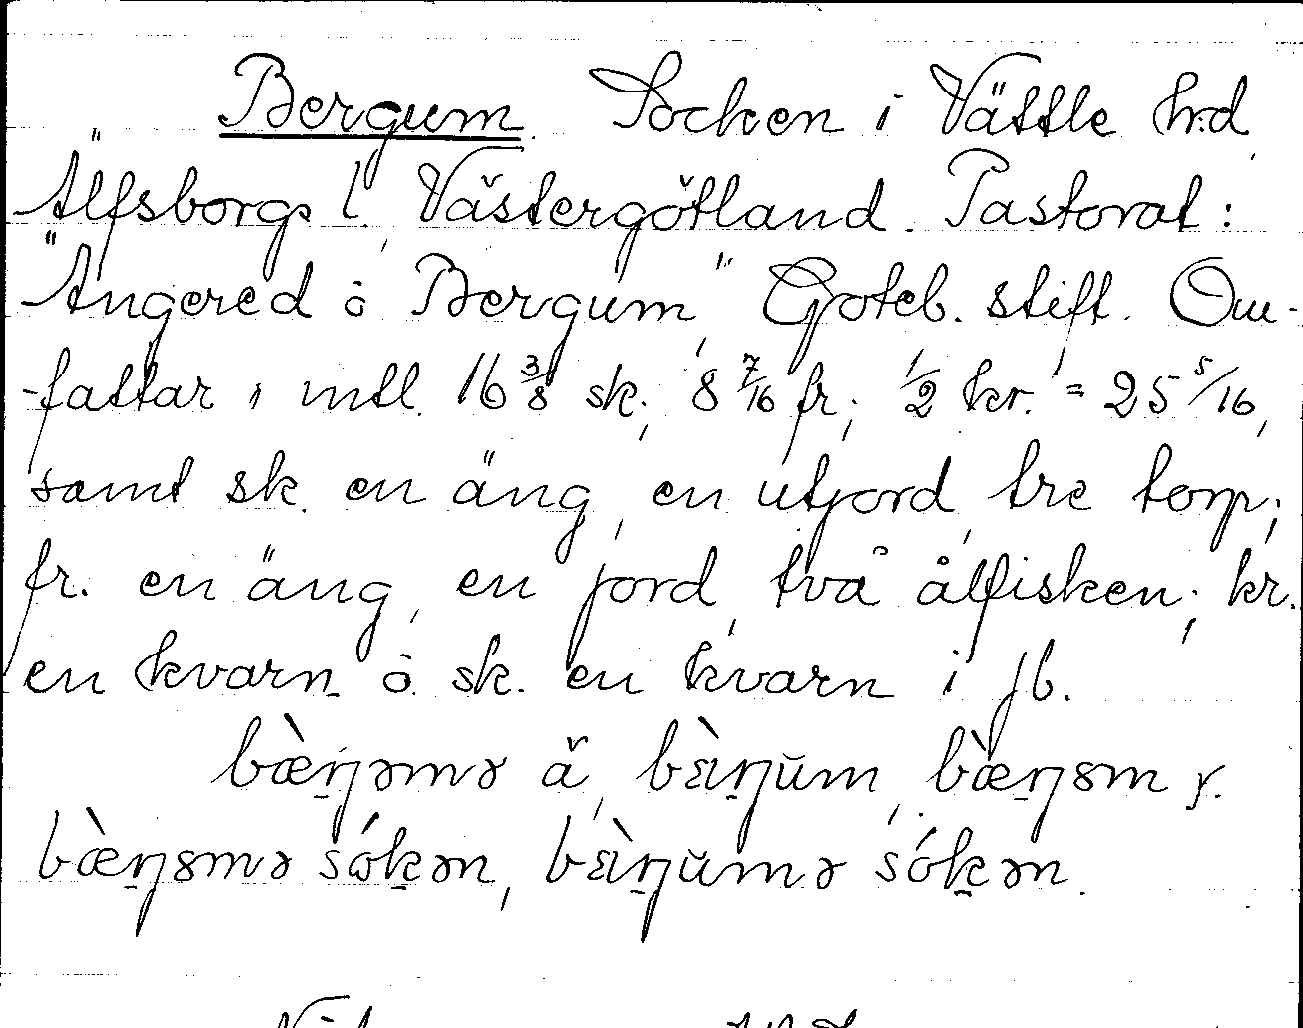 Bergum. Socken i Vättle h:d
Älfsborgs l., Västergötland. Pastorat:
"Angered o Bergum", Göteb. stift. Om-
-fattar i mtl. 16 3/8 sk.; 8 7/16 fr.; 1/2 kr. = 25 5/16,
samt sk. en äng, en utjord, tre torp;
fr. en äng, en jord, två ålfisken; kr.
en kvarn o. sk. en kvarn i jb.